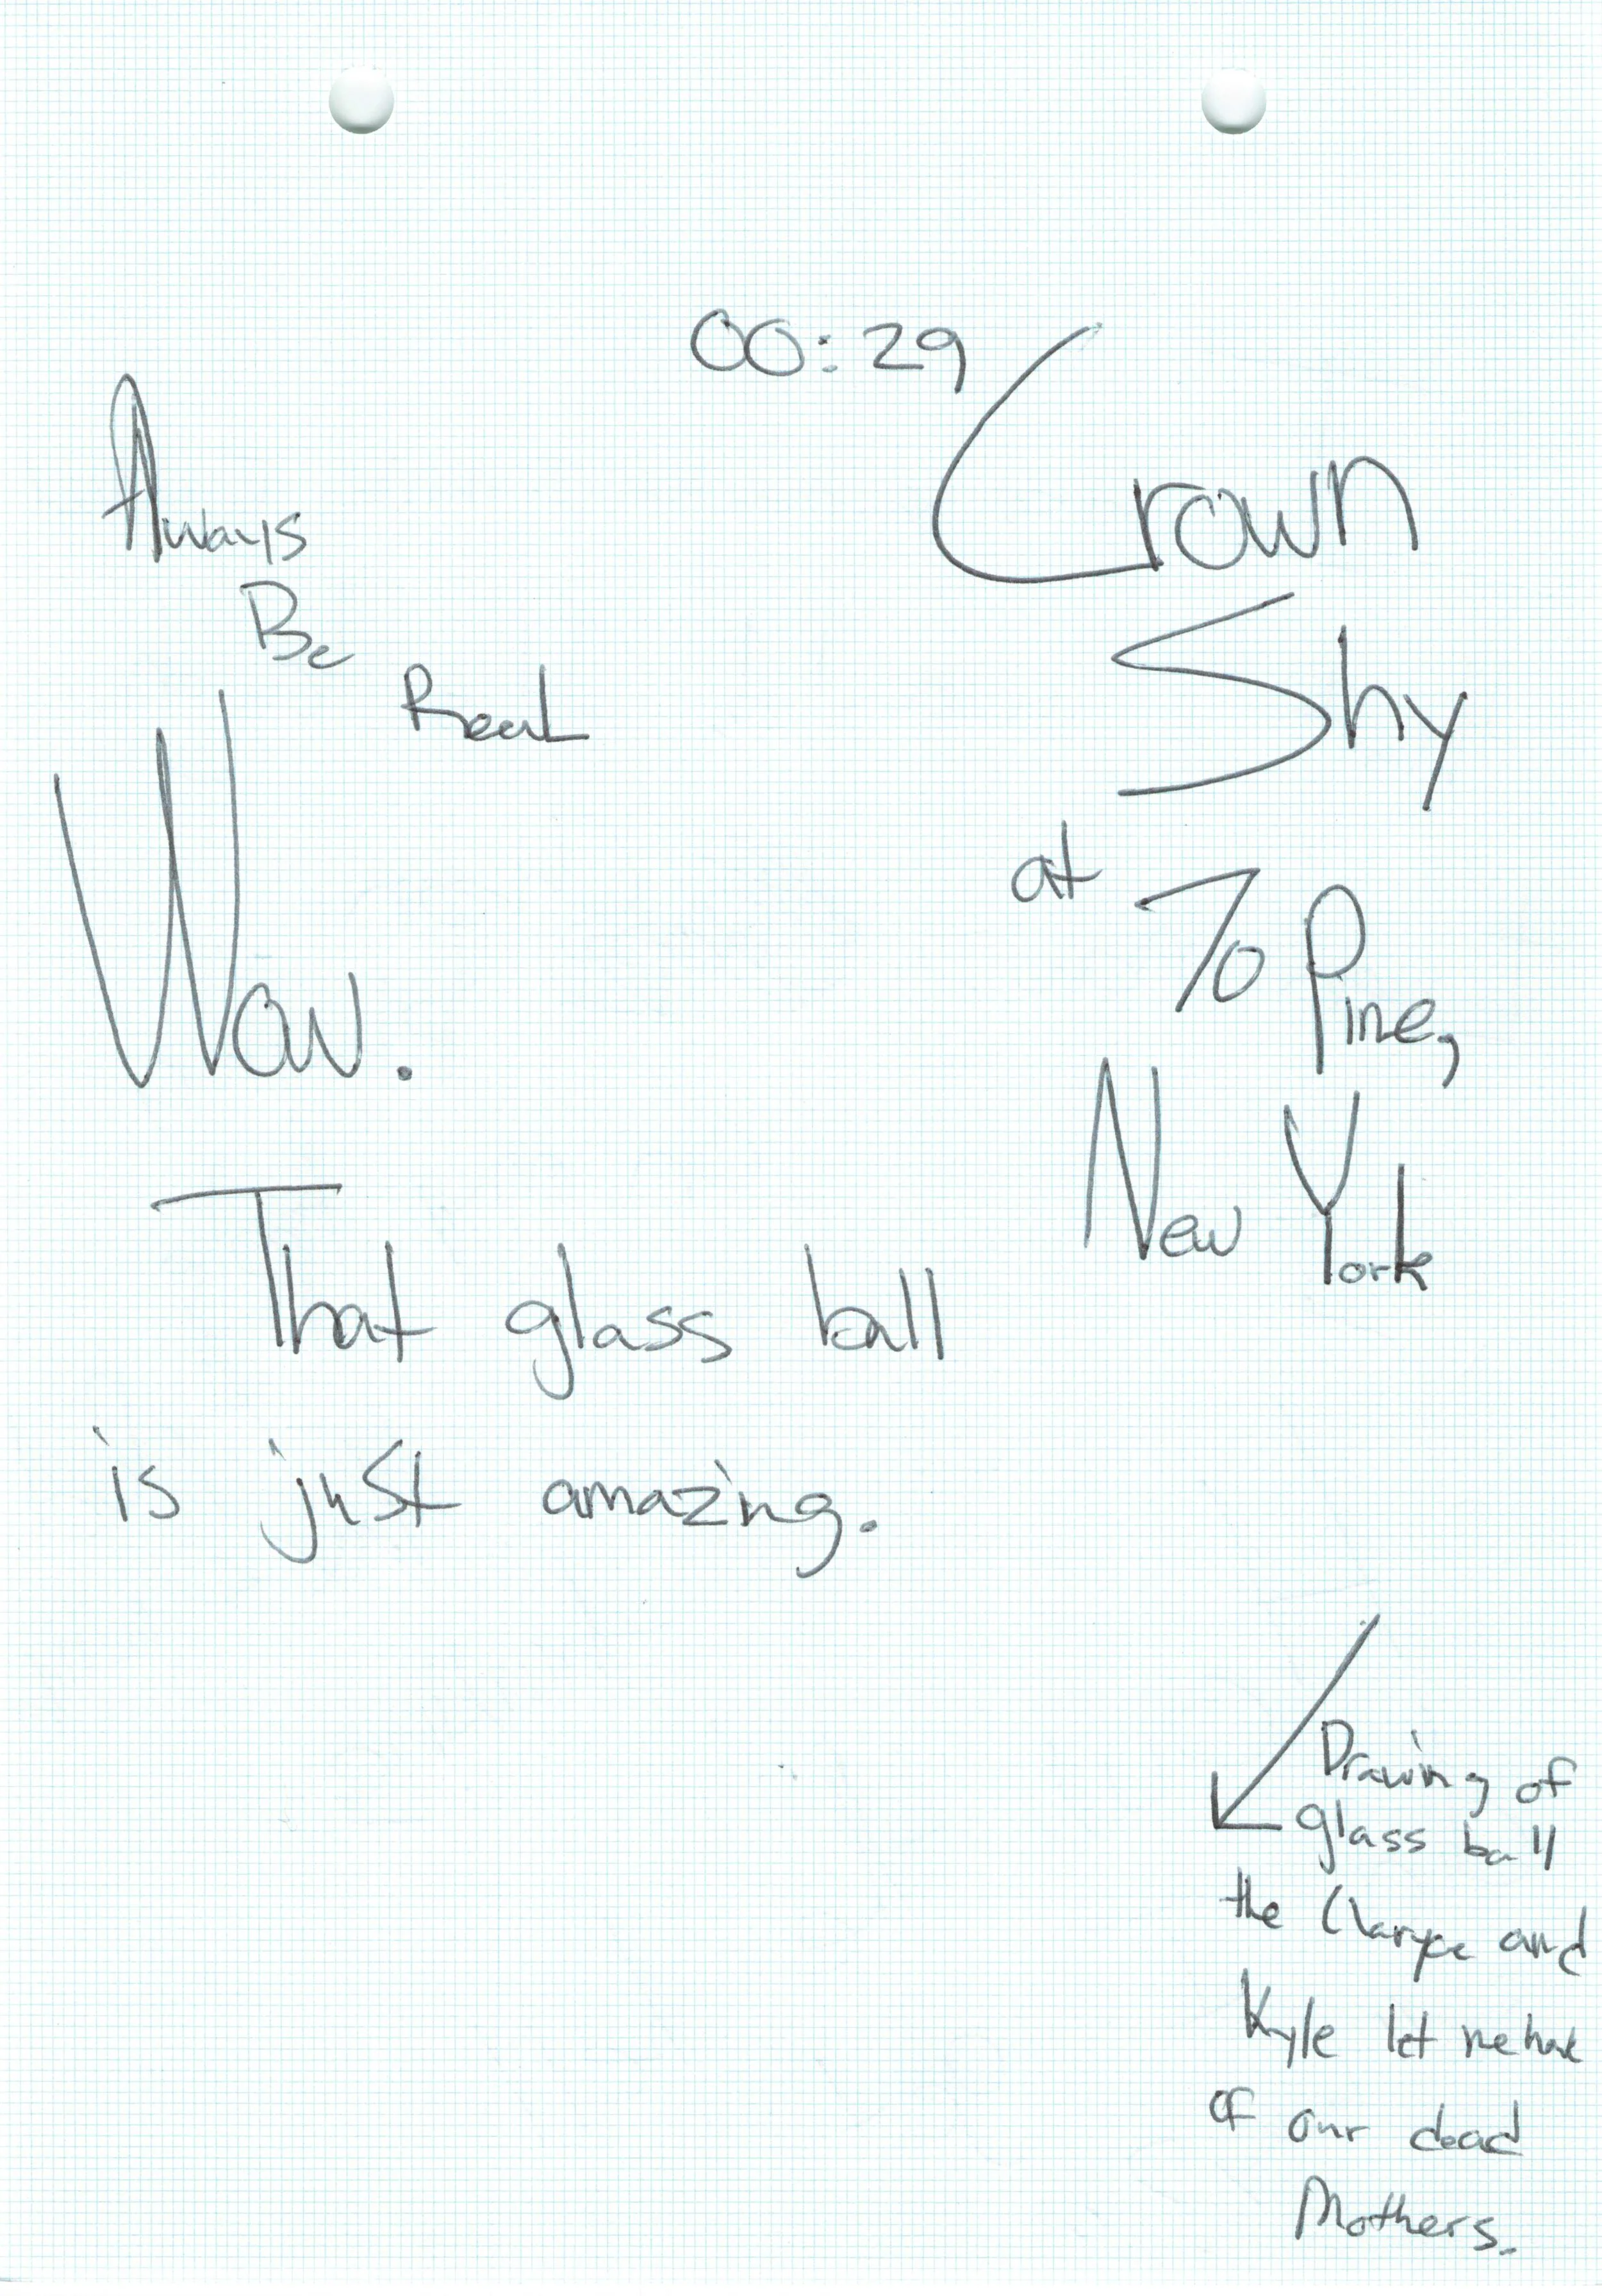 00:29
Always
Be
Real
Wow.
That glass ball
is just amazing.
Crown
Shy
at 70 Pine,
New York
Drawing of
glass ball
the and
Kyle let me have
of our dead
Mothers.